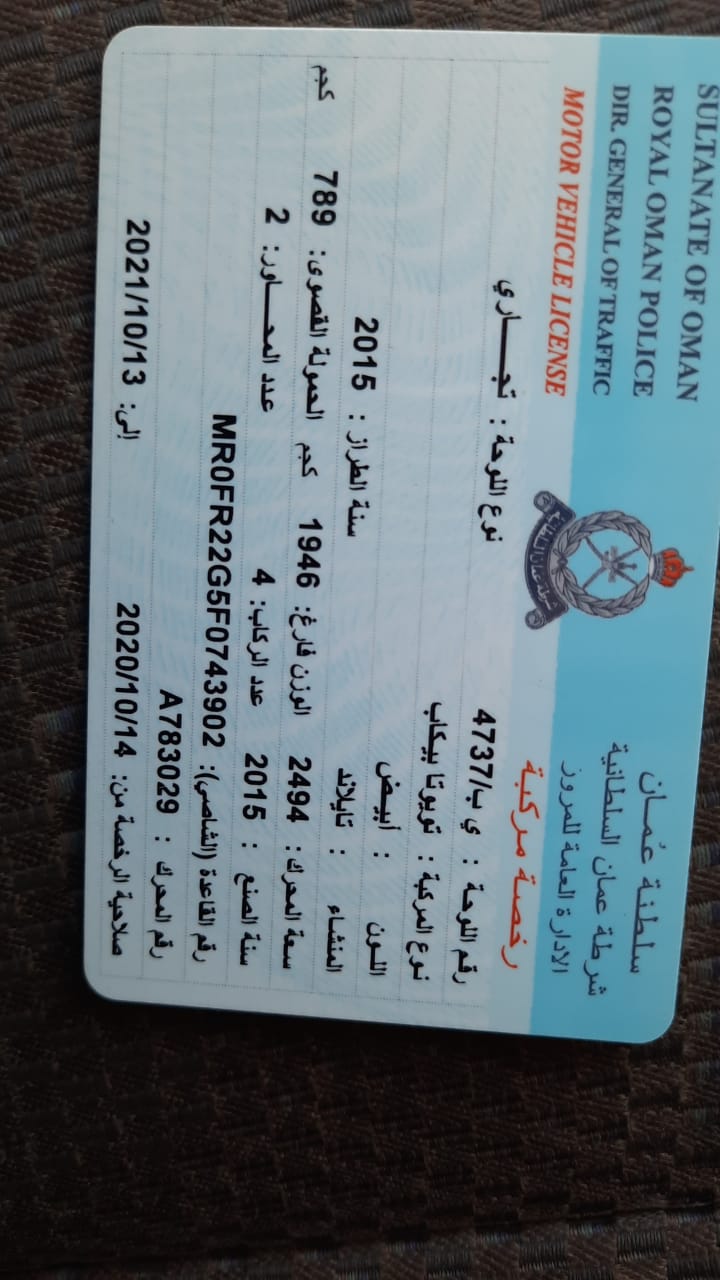 SULTANATE OF OMAN
ROYAL OMAN POLICE
DIR. GENERAL OF TRAFFIC
MOTOR VEHICLE LICENSE
سلطنة عُمان
شرطة عمان السلطانية
الادارة العامة للمرور
رخصة مركبة
شرطة عمان السلطانية
رقم اللوحة : ي ب/4737 نوع اللوحة : تجاري
نوع المركبة : تويوتا بيكاب
اللون : أبيض
المنشاء : تايلاند سنة الطراز : 2015
سعة المحرك: 2494 الوزن فارغ: 1946 كجم الحمولة القصوى: 789 كجم
سنة الصنع : 2015 عدد الركاب: 4 عدد المحاور: 2
رقم القاعدة (الشاصي): MR0FR22G5F0743902
رقم المحرك : A783029
صلاحية الرخصة من: 2020/10/14 إلى: 2021/10/13